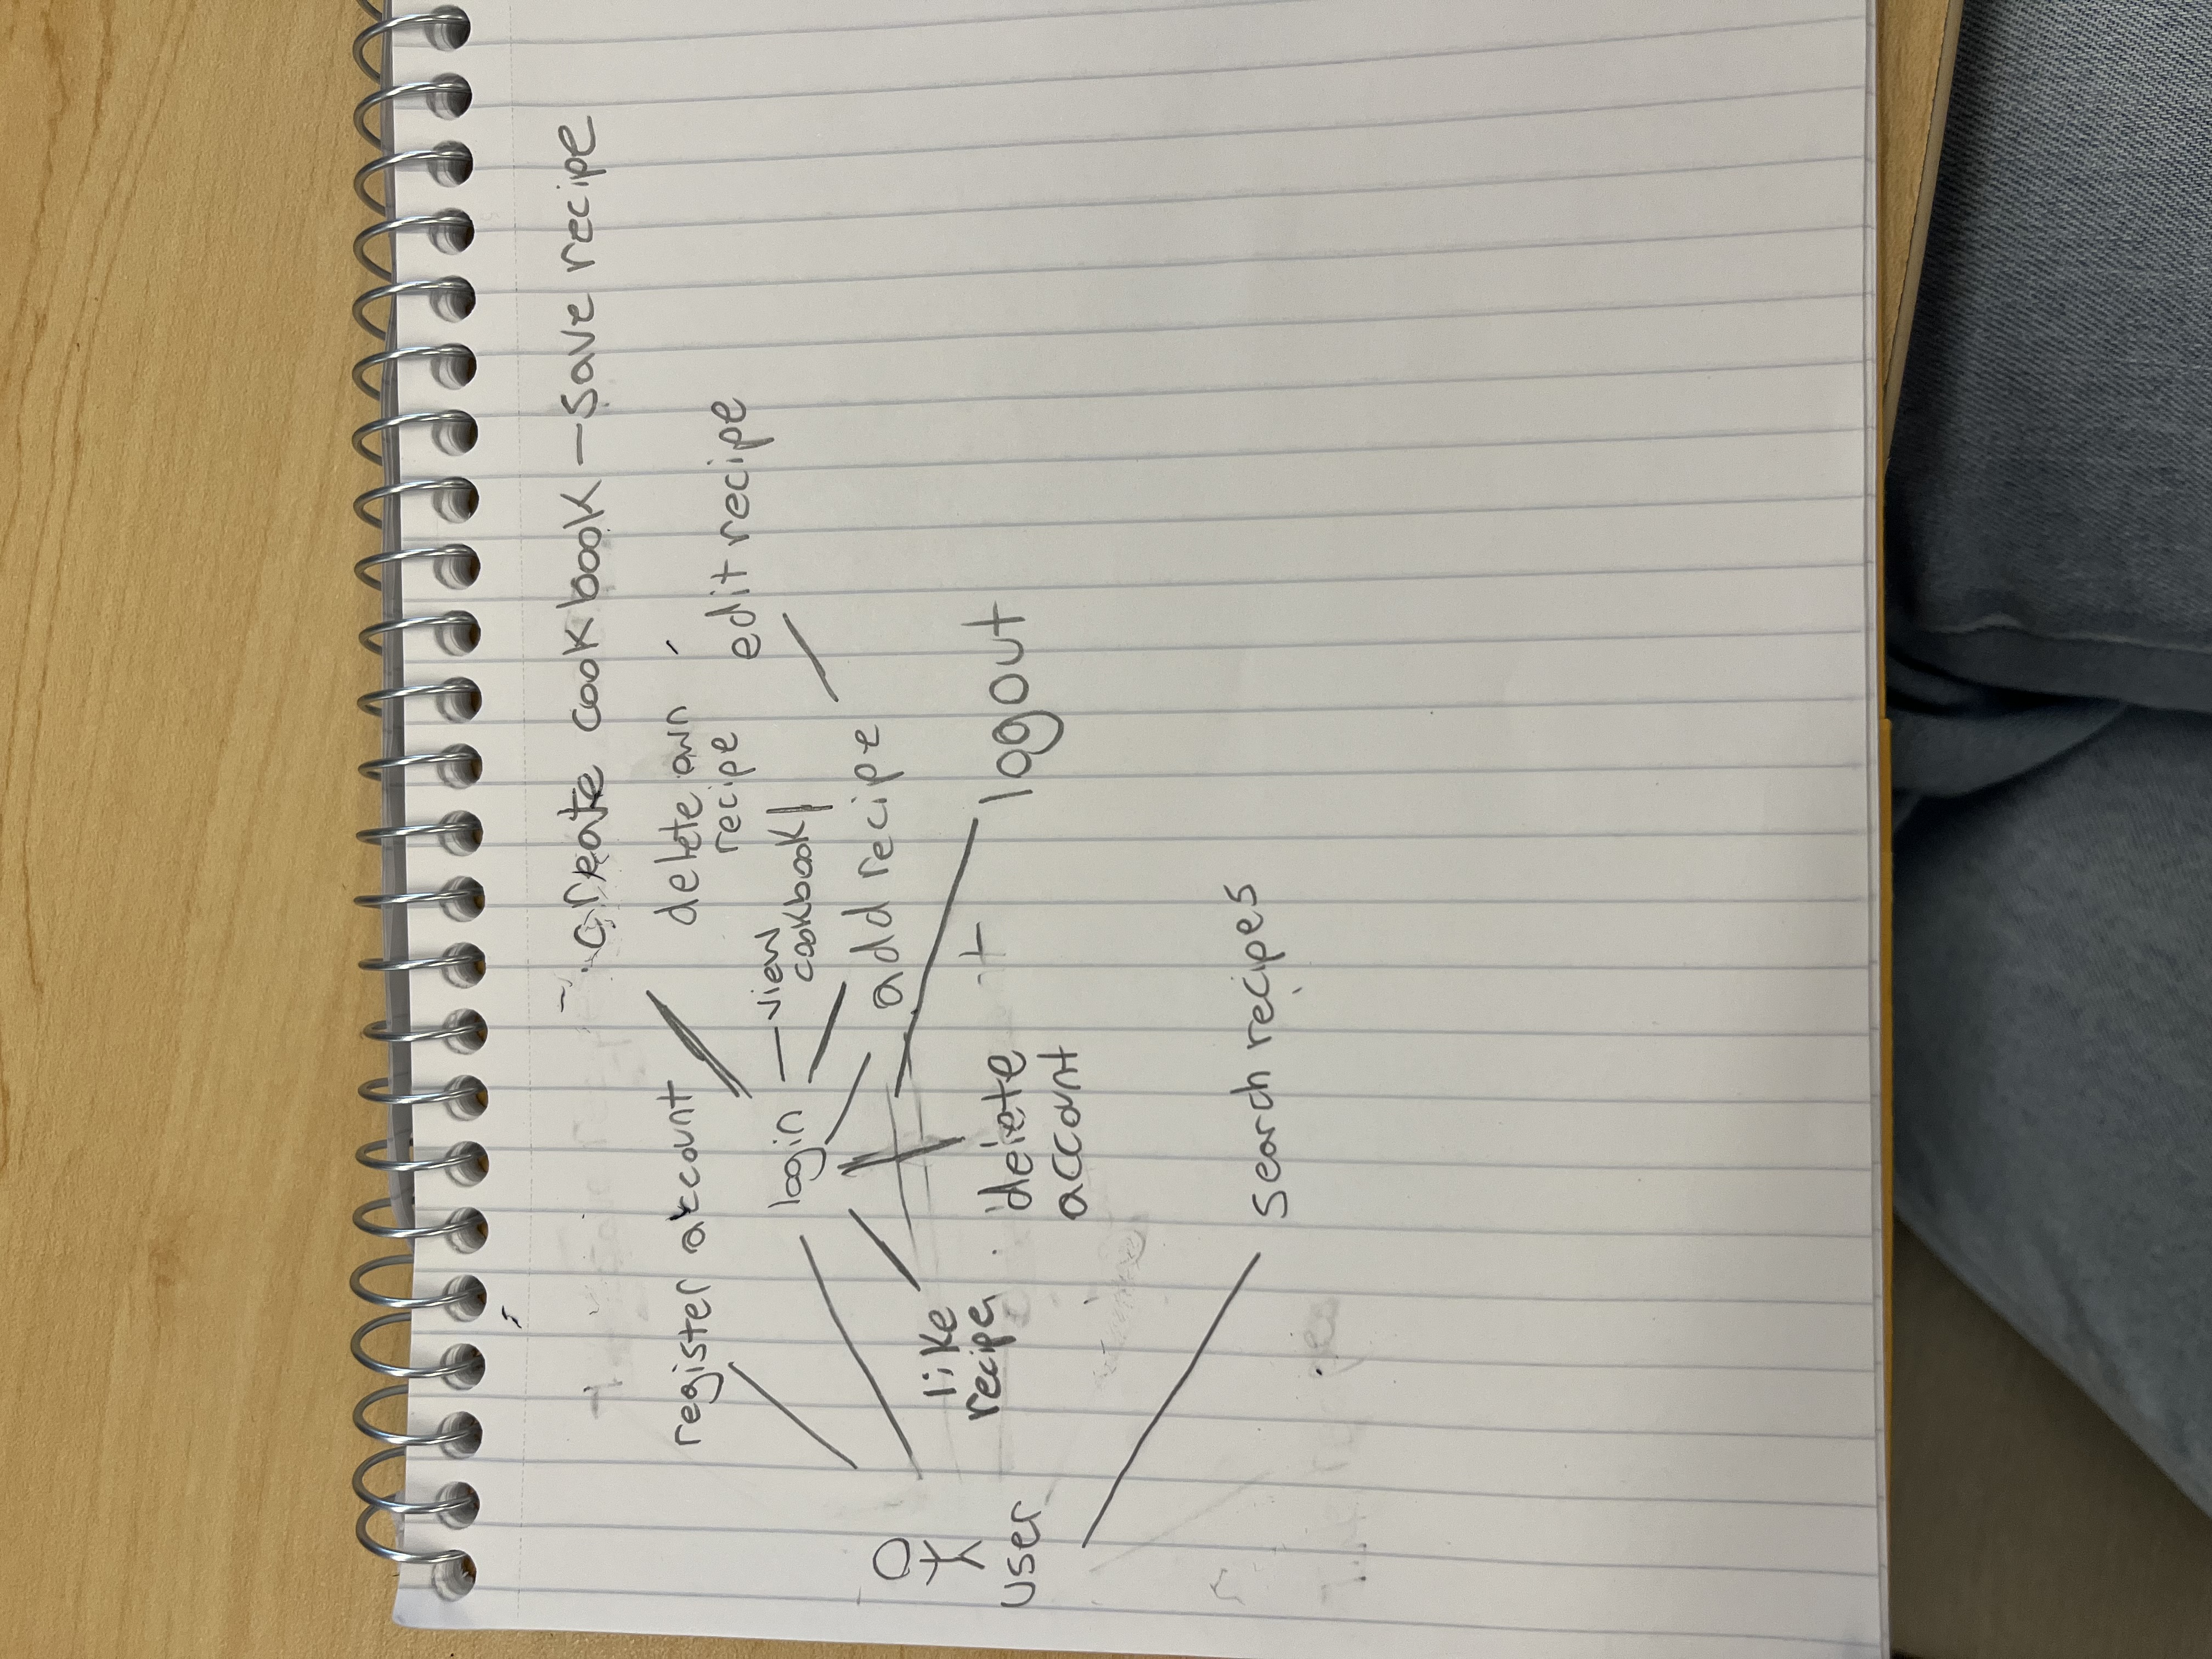 create cookbook – save recipe
register account
delete own
recipe
edit recipe
login
view
cookbook
add recipe
like
recipe
delete
account
logout
user
search recipes